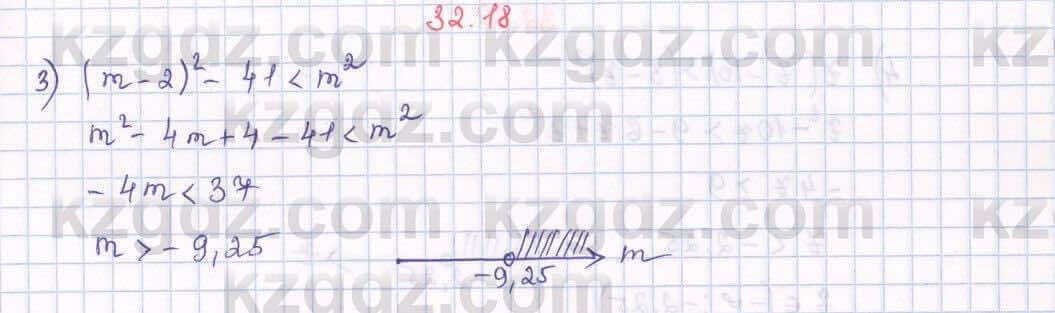 32.18
3) (m - 2)² - 41 < m²
m² - 4m + 4 - 41 < m²
- 4m < 37
m > - 9,25
-9,25 m
kzgdz.com kzgdz.com kz
kzgdz.com
kzgdz.com kzgdz.com kz
kzgdz.com